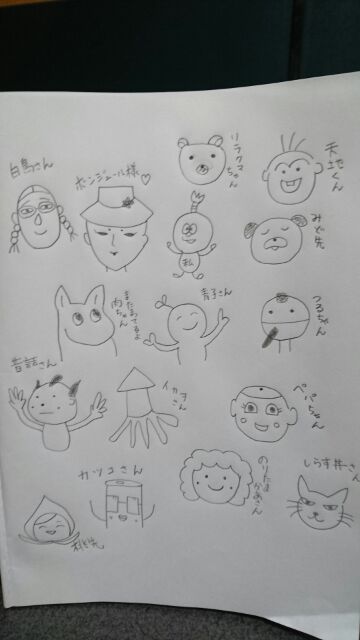 白鳥さん
ボンジュール様♡
リラクマちゃん
天地くん
私
みど先
またあってるよ
肉ちゃん
青子さん
つるちゃん
昔話さん
イカ子さん
ペパちゃん
桃先
カツコさん
のりたま
かあさん
しらす丼さん